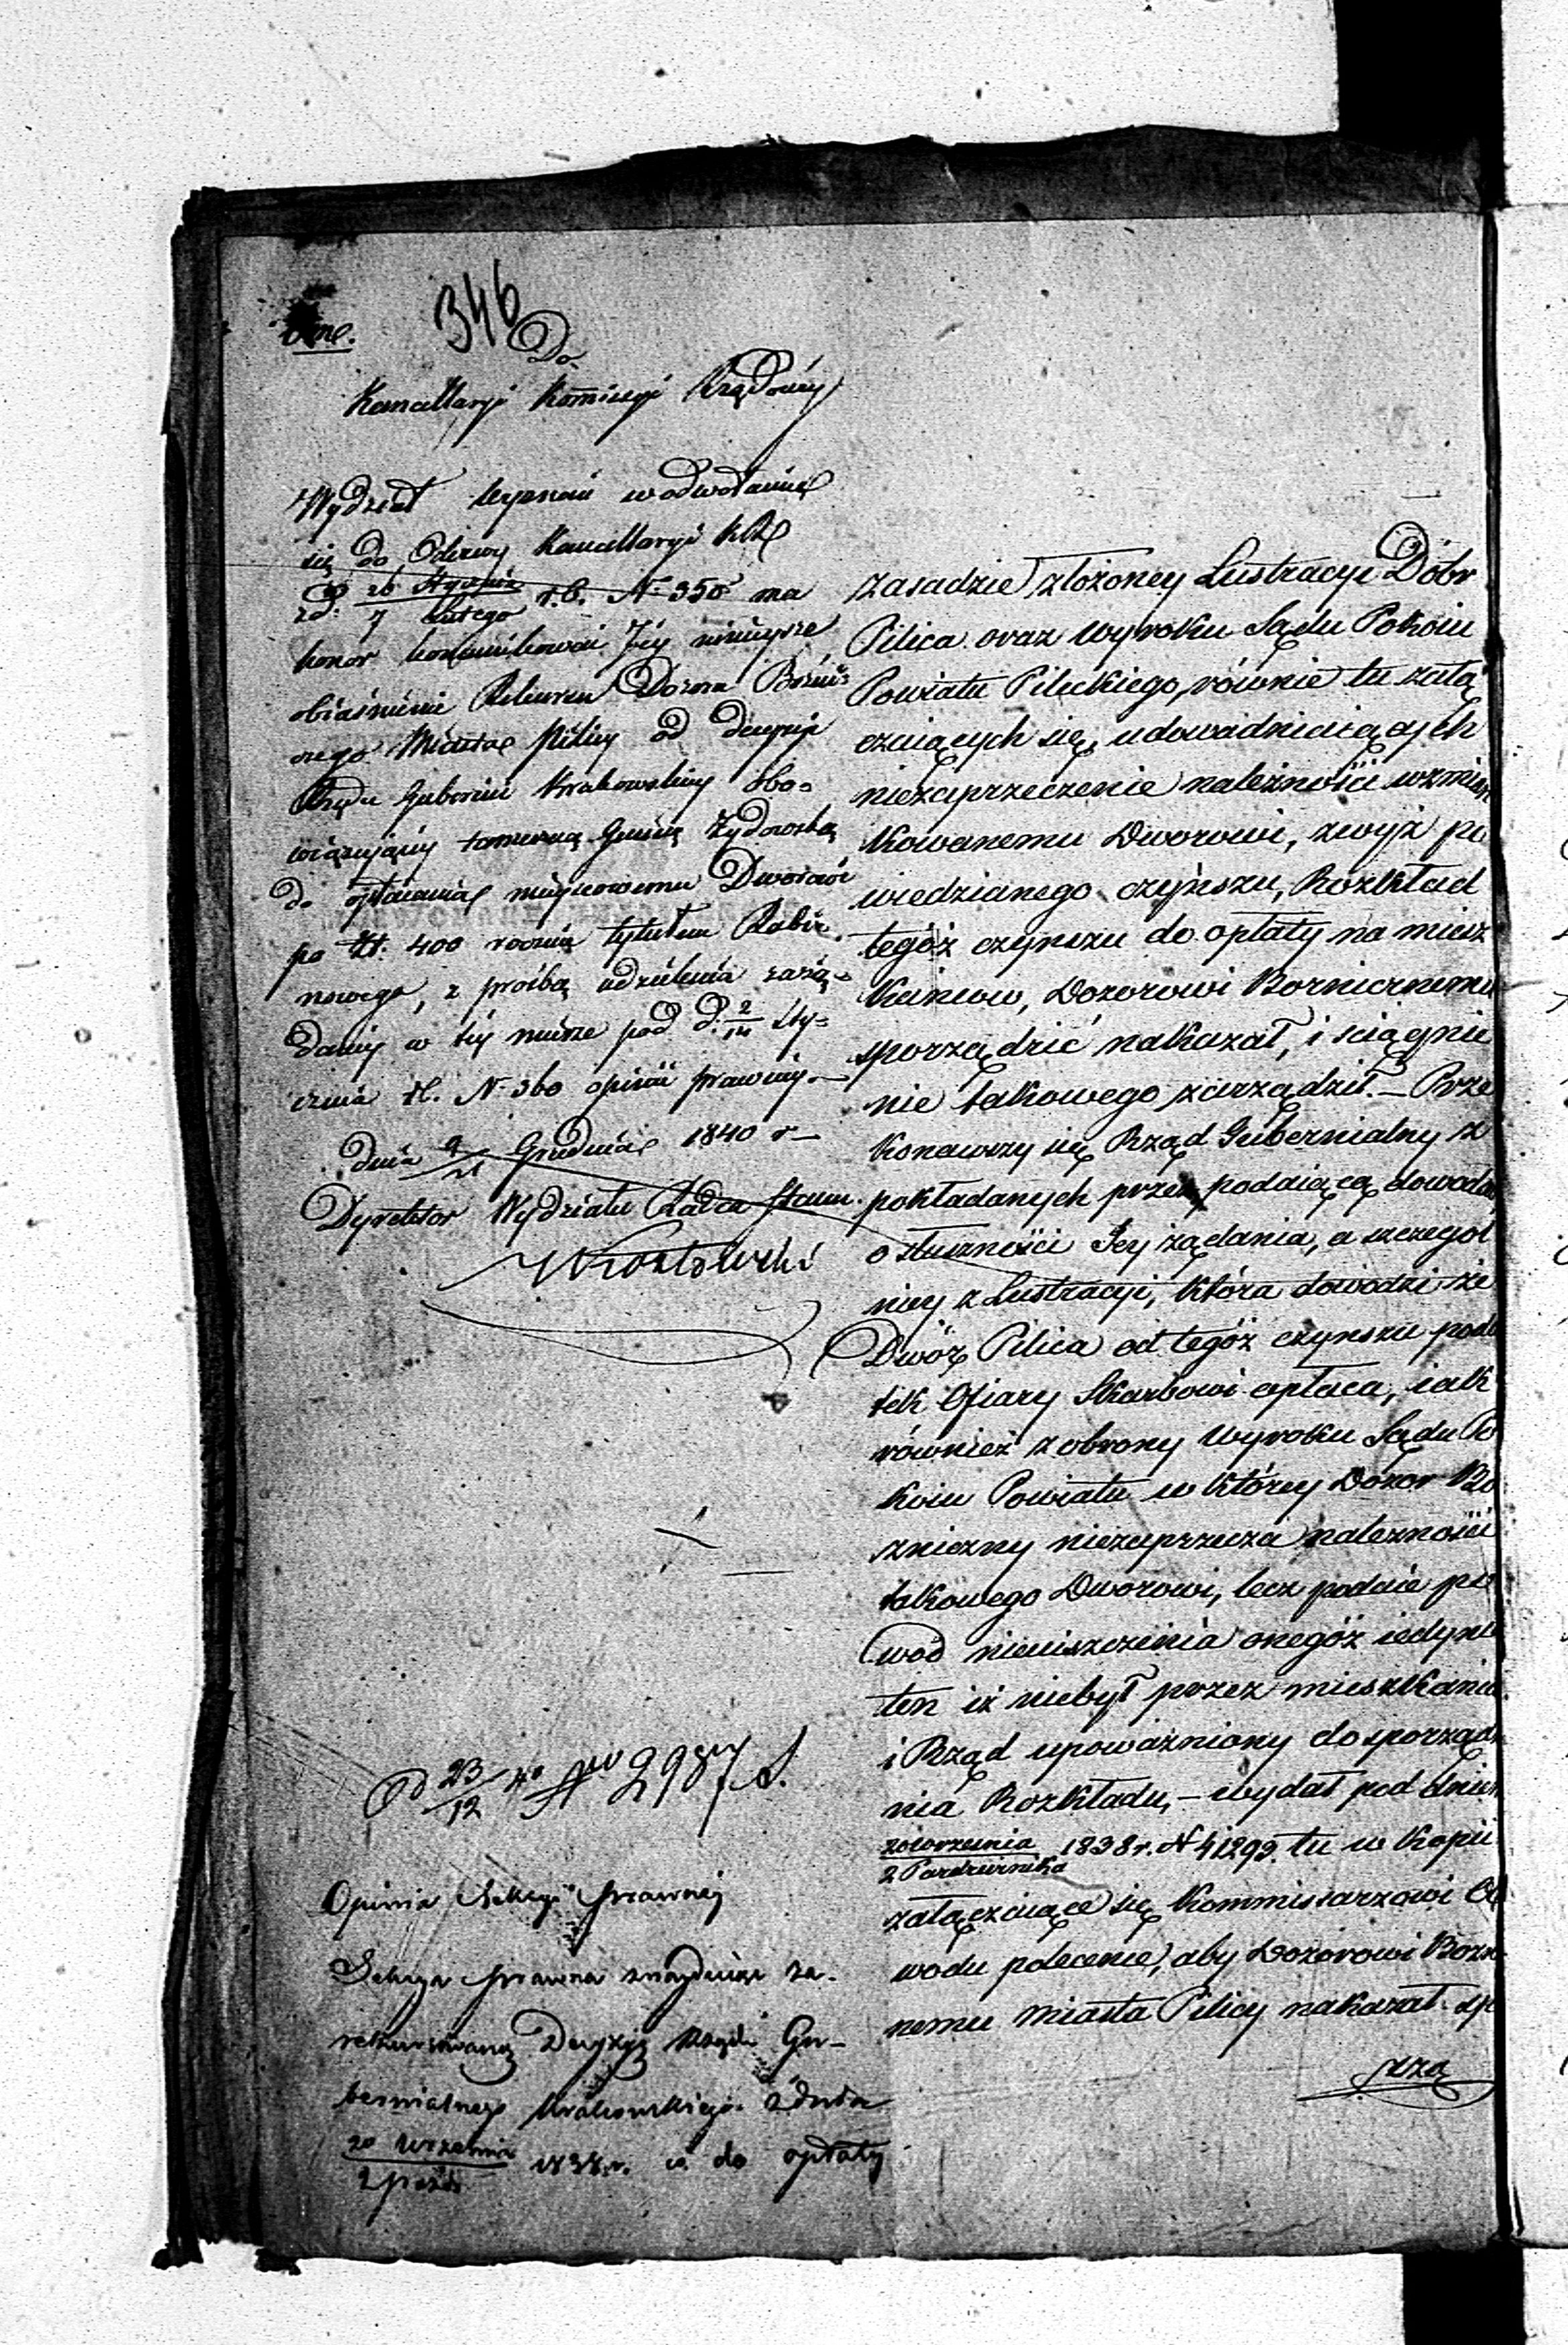 346
Do
Kancellaryi Kommissyi Rządowéy
Wydział Wyznań w odwołaniu
się do Odezwy Kancellaryi KR
z d. 26 Stycznia / 7 Lutego r. b. N. 350 ma
honor kommunikować Jéy niniejsze
obiaśnienie Rekursu Dozoru Bóżni-
cnego Miasta Pilicy od decyzyi
Rządu Gubernii Krakowskiéy obo-
wiązującéy tamteszą Gminę Żydowską
do opłacania mieyscowemu Dworowi
po Zł. 400 rocznie tytułem Rabi-
nowego, z prośbą udzielenia zażą-
danéy w téy mierze pod d. 2/14 Sty-
cznia N. 360 opinii prawnéy.—
dnia 9/21 Grudnia 1840 r—
Dyrektor Wydziału Radca Stanu.
Od 23/12 40 N 2987 S.
Opinia Sekcyi Prawnéj
Sekcya Prawna znayduiąc za-
rekursowaną Decyzyą Rządu Gu-
bernialnego Krakowskiego z dnia
20 Września / 2 Paźdz. 1838 r. co do opłaty
zasadzie złożoney Lustracyi Dóbr
Pilica oraz Wyroku Sądu Pokoiu
Powiatu Pileckiego, równie tu załą
czaiących się, udowadniaiących
niezaprzeczenie należności wzmian
kowanemu Dworowi, zwyż po
wiedzianego czynszu, Rozkład
tegóż czynszu do opłaty na miesz
kańców, Dozorowi Bożnicznemu
sporządzić nakazał, i ściągnie
nie takowego zarządził.— Prze
konawszy się Rząd Gubernialny z
pokładanych przez podaiącą dowodów
o słuszności Jey żądania, a szczegól
niey z Lustracyi, która dowodzi że
Dwór Pilica od tegóż czynszu poda
tek Ofiary Skarbowi opłaca, iak
również z obrony Wyroku Sądu Po
koiu Powiatu w którey Dozor Bo
żniczny niezaprzecza należności
takowego Dworowi, lecz podaie po
wód nieuiszczenia onegóż iedynie
ten iż niebył przez mieszkańców
i Rząd upoważniony do sporządze
nia Rozkładu,— wydał pod dniem
20 Września / 2 Października 1838 r. N 41299. tu w kopii
załączaiące się Kommissarzowi Ob
wodu polecenie, aby Dozorowi Bożni
nemu Miasta Pilicy nakazał spo
rzą